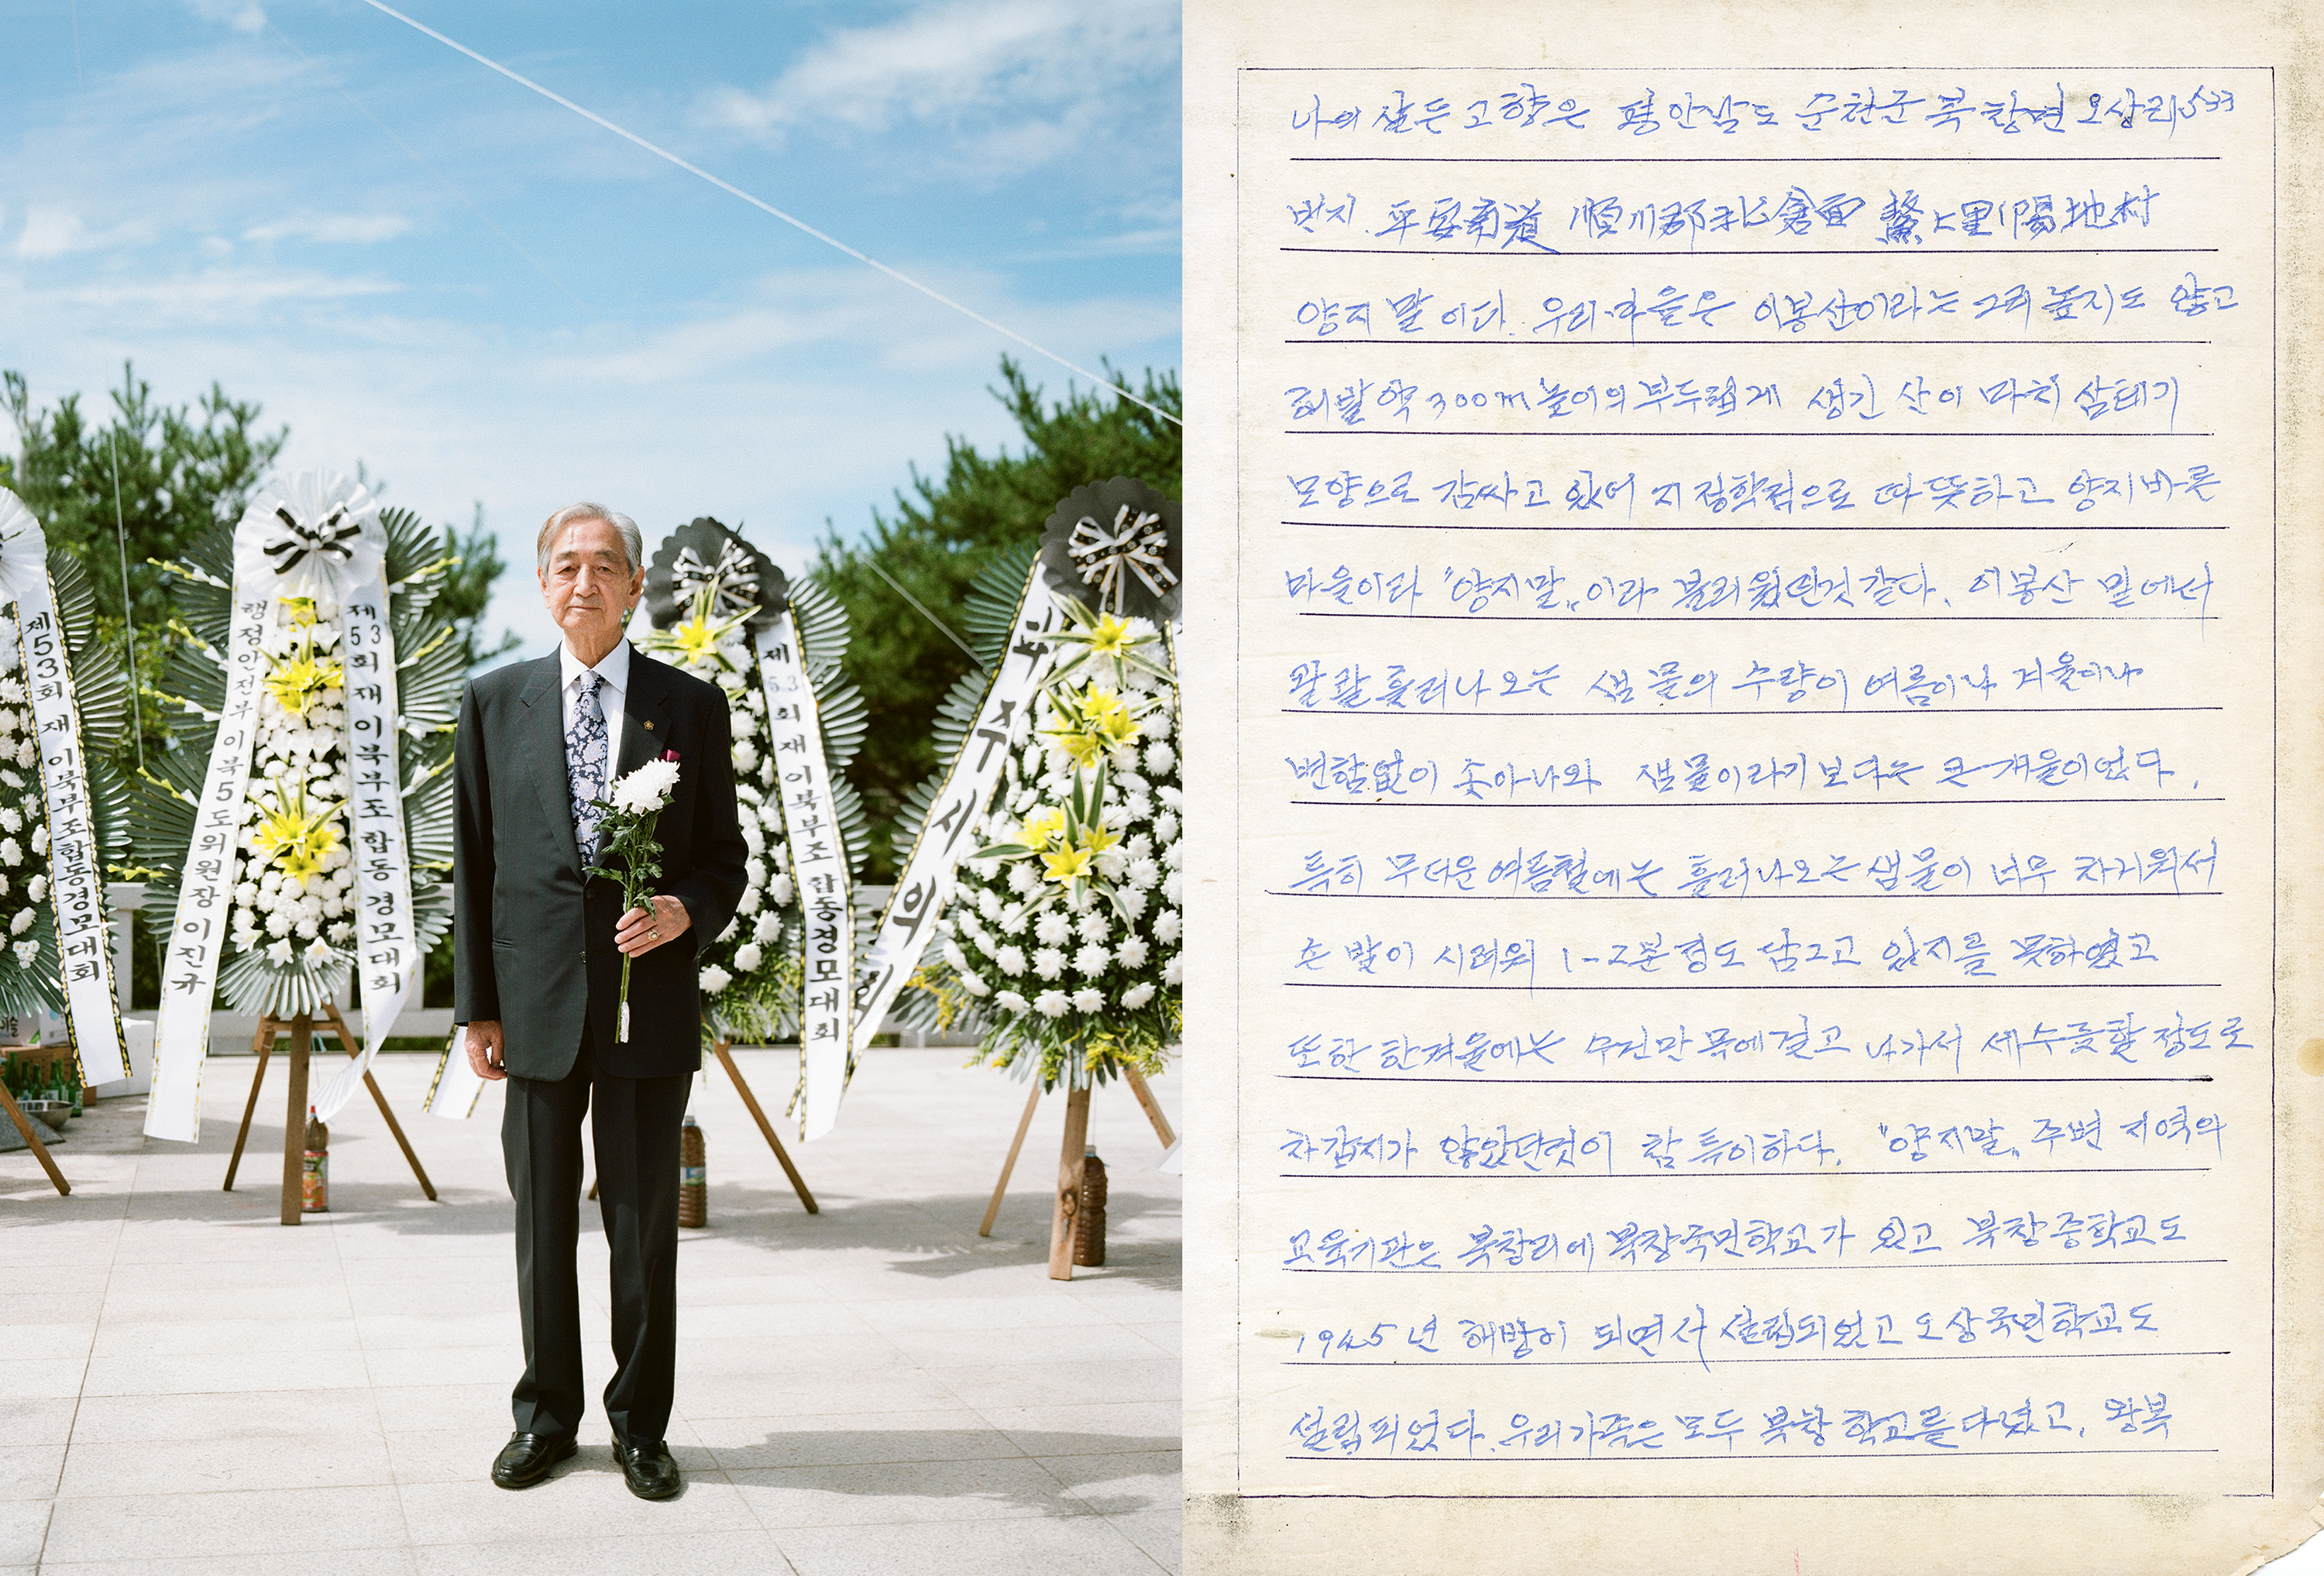 제53회 재이북부조합동경모대회
행정안전부 이북5도위원장 이진규
제53회 재이북부조합동경모대회
제53회 재이북부조합동경모대회
주시의
나의 살든 고향은 평안남도 순천군 북창면 오상리 533
번지. 平安南道 順川郡 北倉面 鰲上里 陽地村
양지말이다. 우리 마을은 이봉산이라는 그리 높지도 않고
해발 약 300m 높이의 부두럽게 생긴 산이 마치 삼태기
모양으로 감싸고 있어 지정학적으로 따뜻하고 양지바른
마을이라 "양지말„이라 불리웠던것 같다. 이봉산 밑에서
콸콸 흘러나오는 샘물의 수량이 여름이나 겨울이나
변함없이 솟아나와 샘물이라기 보다는 큰 개울이었다.
특히 무더운 여름철에는 흘러나오는 샘물이 너무 차거워서
손발이 시려워 1-2분 정도 담그고 있지를 못하였고
또한 한겨울에는 수건만 목에 걸고 나가서 세수를 할 정도로
차갑지가 않았던것이 참 특이하다. "양지말„ 주변 지역의
교육기관은 북창리에 북창국민학교가 있고 북창중학교도
1945년 해방이 되면서 설립되었고 오상국민학교도
설립되었다. 우리가족은 모두 북창학교를 다녔고, 왕복